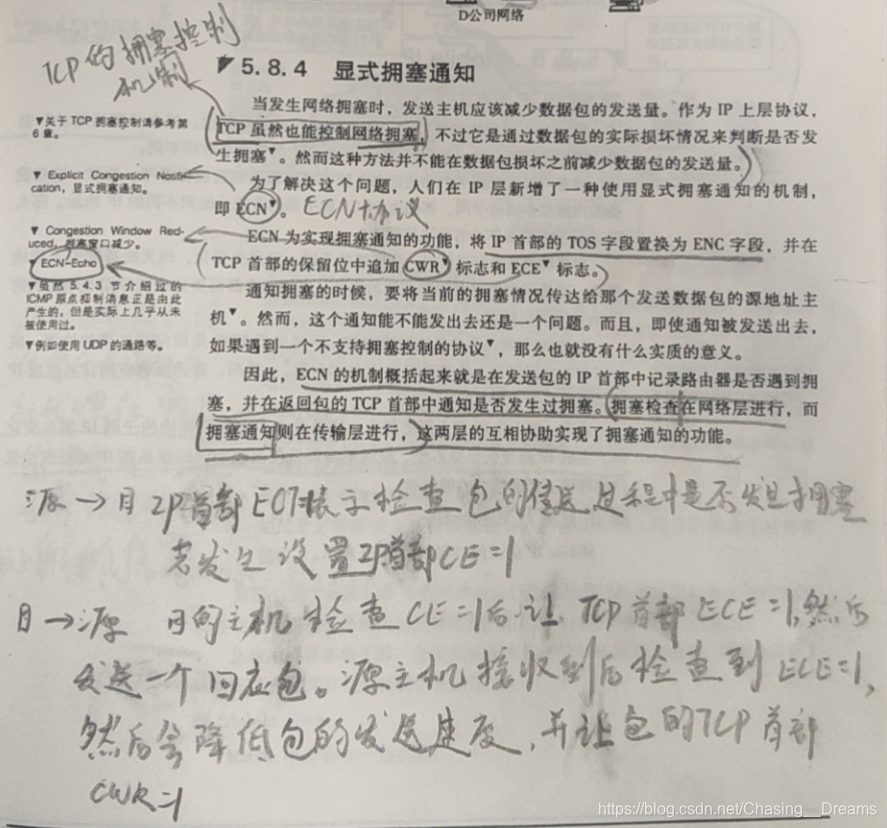 D公司网络
TCP的拥塞控制
机制
5.8.4 显式拥塞通知
当发生网络拥塞时，发送主机应该减少数据包的发送量。作为 IP 上层协议，
▼关于 TCP 拥塞控制请参考第
6 章。
TCP 虽然也能控制网络拥塞，不过它是通过数据包的实际损坏情况来判断是否发
生拥塞▼。然而这种方法并不能在数据包损坏之前减少数据包的发送量。
▼ Explicit Congestion Notifi-
cation，显式拥塞通知。
为了解决这个问题，人们在 IP 层新增了一种使用显式拥塞通知的机制，
即 ECN▼。 ECN协议
▼ Congestion Window Red-
uced，拥塞窗口减少。
ECN 为实现拥塞通知的功能，将 IP 首部的 TOS 字段置换为 ENC 字段，并在
▼ ECN-Echo
TCP 首部的保留位中追加 CWR▼ 标志和 ECE▼ 标志。
▼虽然 5.4.3 节介绍过的
ICMP 原点抑制消息正是由此
产生的，但是实际上几乎从未
被使用过。
通知拥塞的时候，要将当前的拥塞情况传达给那个发送数据包的源地址主
机▼。然而，这个通知能不能发出去还是一个问题。而且，即使通知被发送出去，
▼例如使用 UDP 的通路等。
如果遇到一个不支持拥塞控制的协议▼，那么也就没有什么实质的意义。
因此，ECN 的机制概括起来就是在发送包的 IP 首部中记录路由器是否遇到拥
塞，并在返回包的 TCP 首部中通知是否发生过拥塞。拥塞检查在网络层进行，而
拥塞通知则在传输层进行，这两层的互相协助实现了拥塞通知的功能。
源→目 IP首部ECT表示检查包的传送过程中是否发生拥塞
若发生设置IP首部CE=1
目→源 目的主机检查CE=1后让TCP首部ECE=1,然后
发送一个回应包。源主机接收到后检查到ECE=1,
然后会降低包的发送速度,并让包的TCP首部
CWR=1
https://blog.csdn.net/Chasing__Dreams